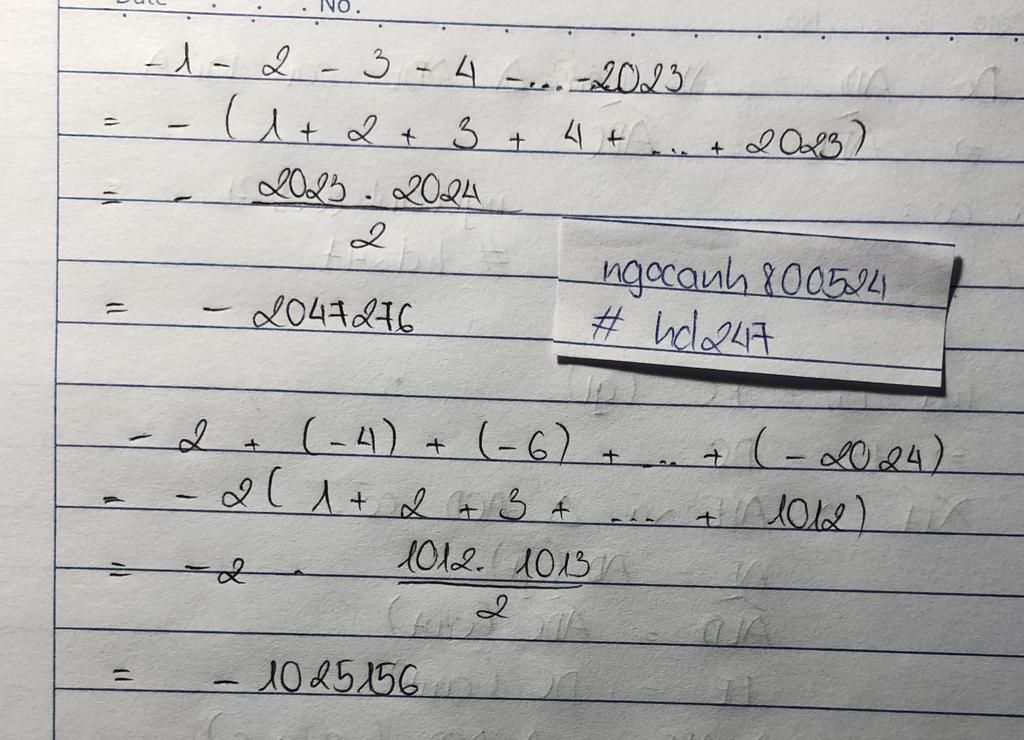 No.
-1 - 2 - 3 - 4 - ... -2023
= - (1 + 2 + 3 + 4 + ... + 2023)
= - 2023 . 2024
2
= - 2047276
ngocanh800524
# hd247
- 2 + (-4) + (-6) + ... + (- 2024)
= - 2 (1 + 2 + 3 + .... + 1012)
= -2 . 1012. 1013
2
= - 1025156